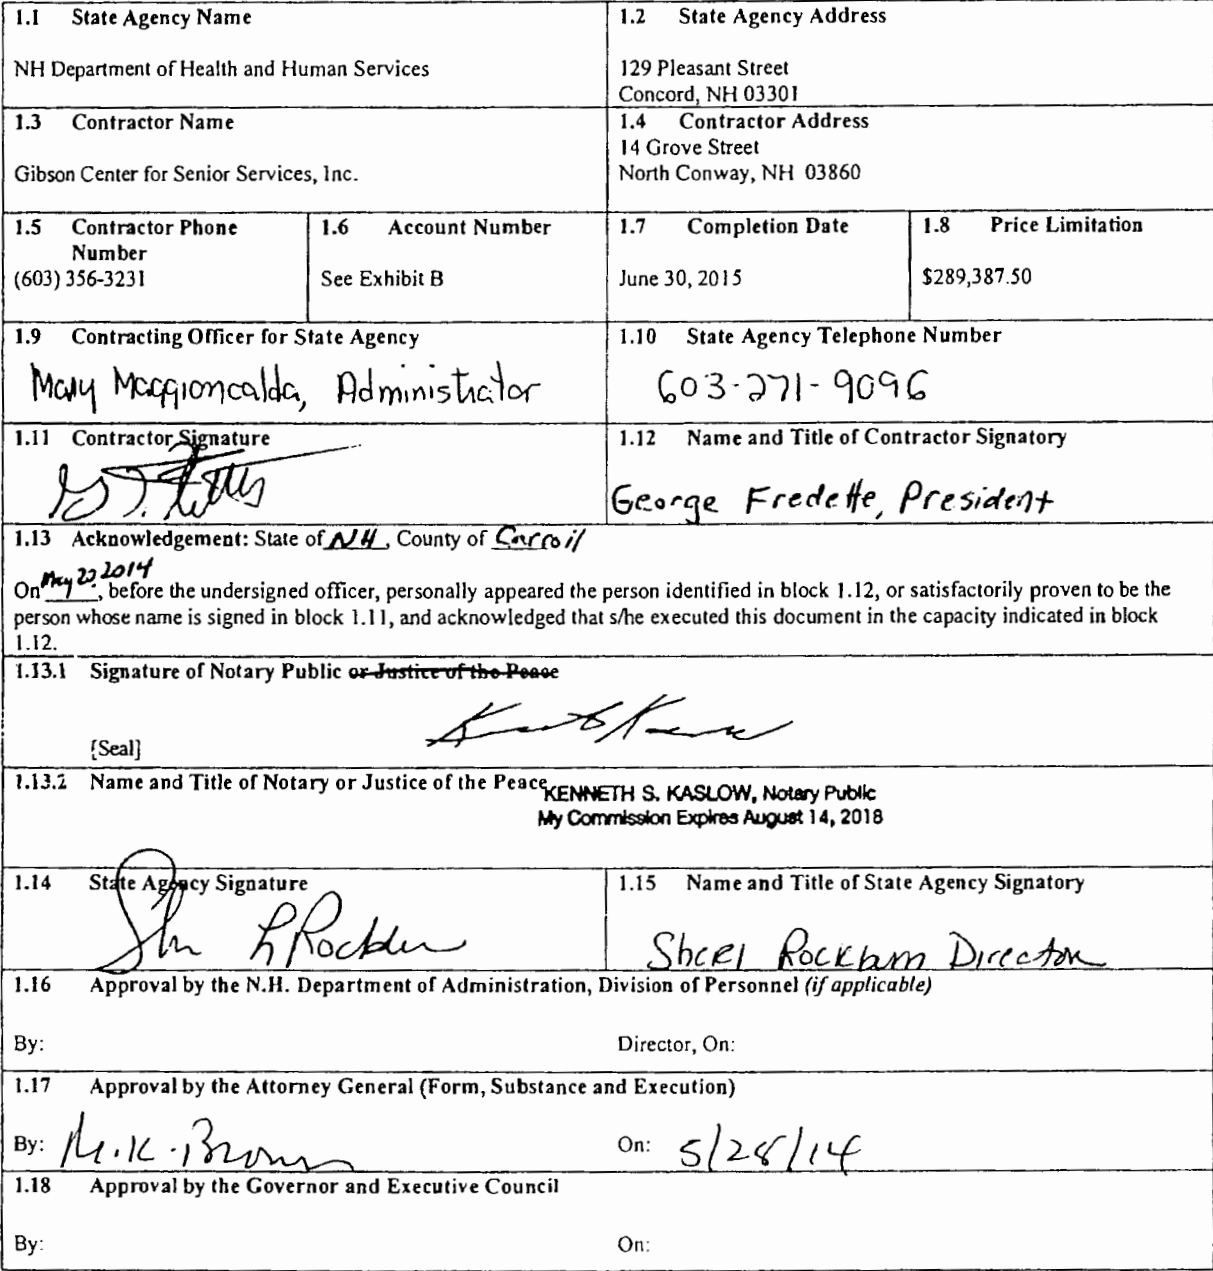 1.1 State Agency Name
NH Department of Health and Human Services
1.2 State Agency Address
129 Pleasant Street
Concord, NH 03301
1.3 Contractor Name
Gibson Center for Senior Services, Inc.
1.4 Contractor Address
14 Grove Street
North Conway, NH 03860
1.5 Contractor Phone
Number
(603) 356-3231
1.6 Account Number
See Exhibit B
1.7 Completion Date
June 30, 2015
1.8 Price Limitation
$289,387.50
1.9 Contracting Officer for State Agency
Mary Maggioncalda, Administrator
1.10 State Agency Telephone Number
603-271-9096
1.11 Contractor Signature
1.12 Name and Title of Contractor Signatory
George Fredette, President
1.13 Acknowledgement: State of NH, County of Carroll
On May 22, 2014, before the undersigned officer, personally appeared the person identified in block 1.12, or satisfactorily proven to be the
person whose name is signed in block 1.11, and acknowledged that s/he executed this document in the capacity indicated in block
1.12.
1.13.1 Signature of Notary Public or Justice of the Peace
[Seal]
1.13.2 Name and Title of Notary or Justice of the Peace
KENNETH S. KASLOW, Notary Public
My Commission Expires August 14, 2018
1.14 State Agency Signature
1.15 Name and Title of State Agency Signatory
Sheri Rockburn Director
1.16 Approval by the N.H. Department of Administration, Division of Personnel (if applicable)
By:
Director, On:
1.17 Approval by the Attorney General (Form, Substance and Execution)
By: M.K. Brown
On: 5/28/14
1.18 Approval by the Governor and Executive Council
By:
On: